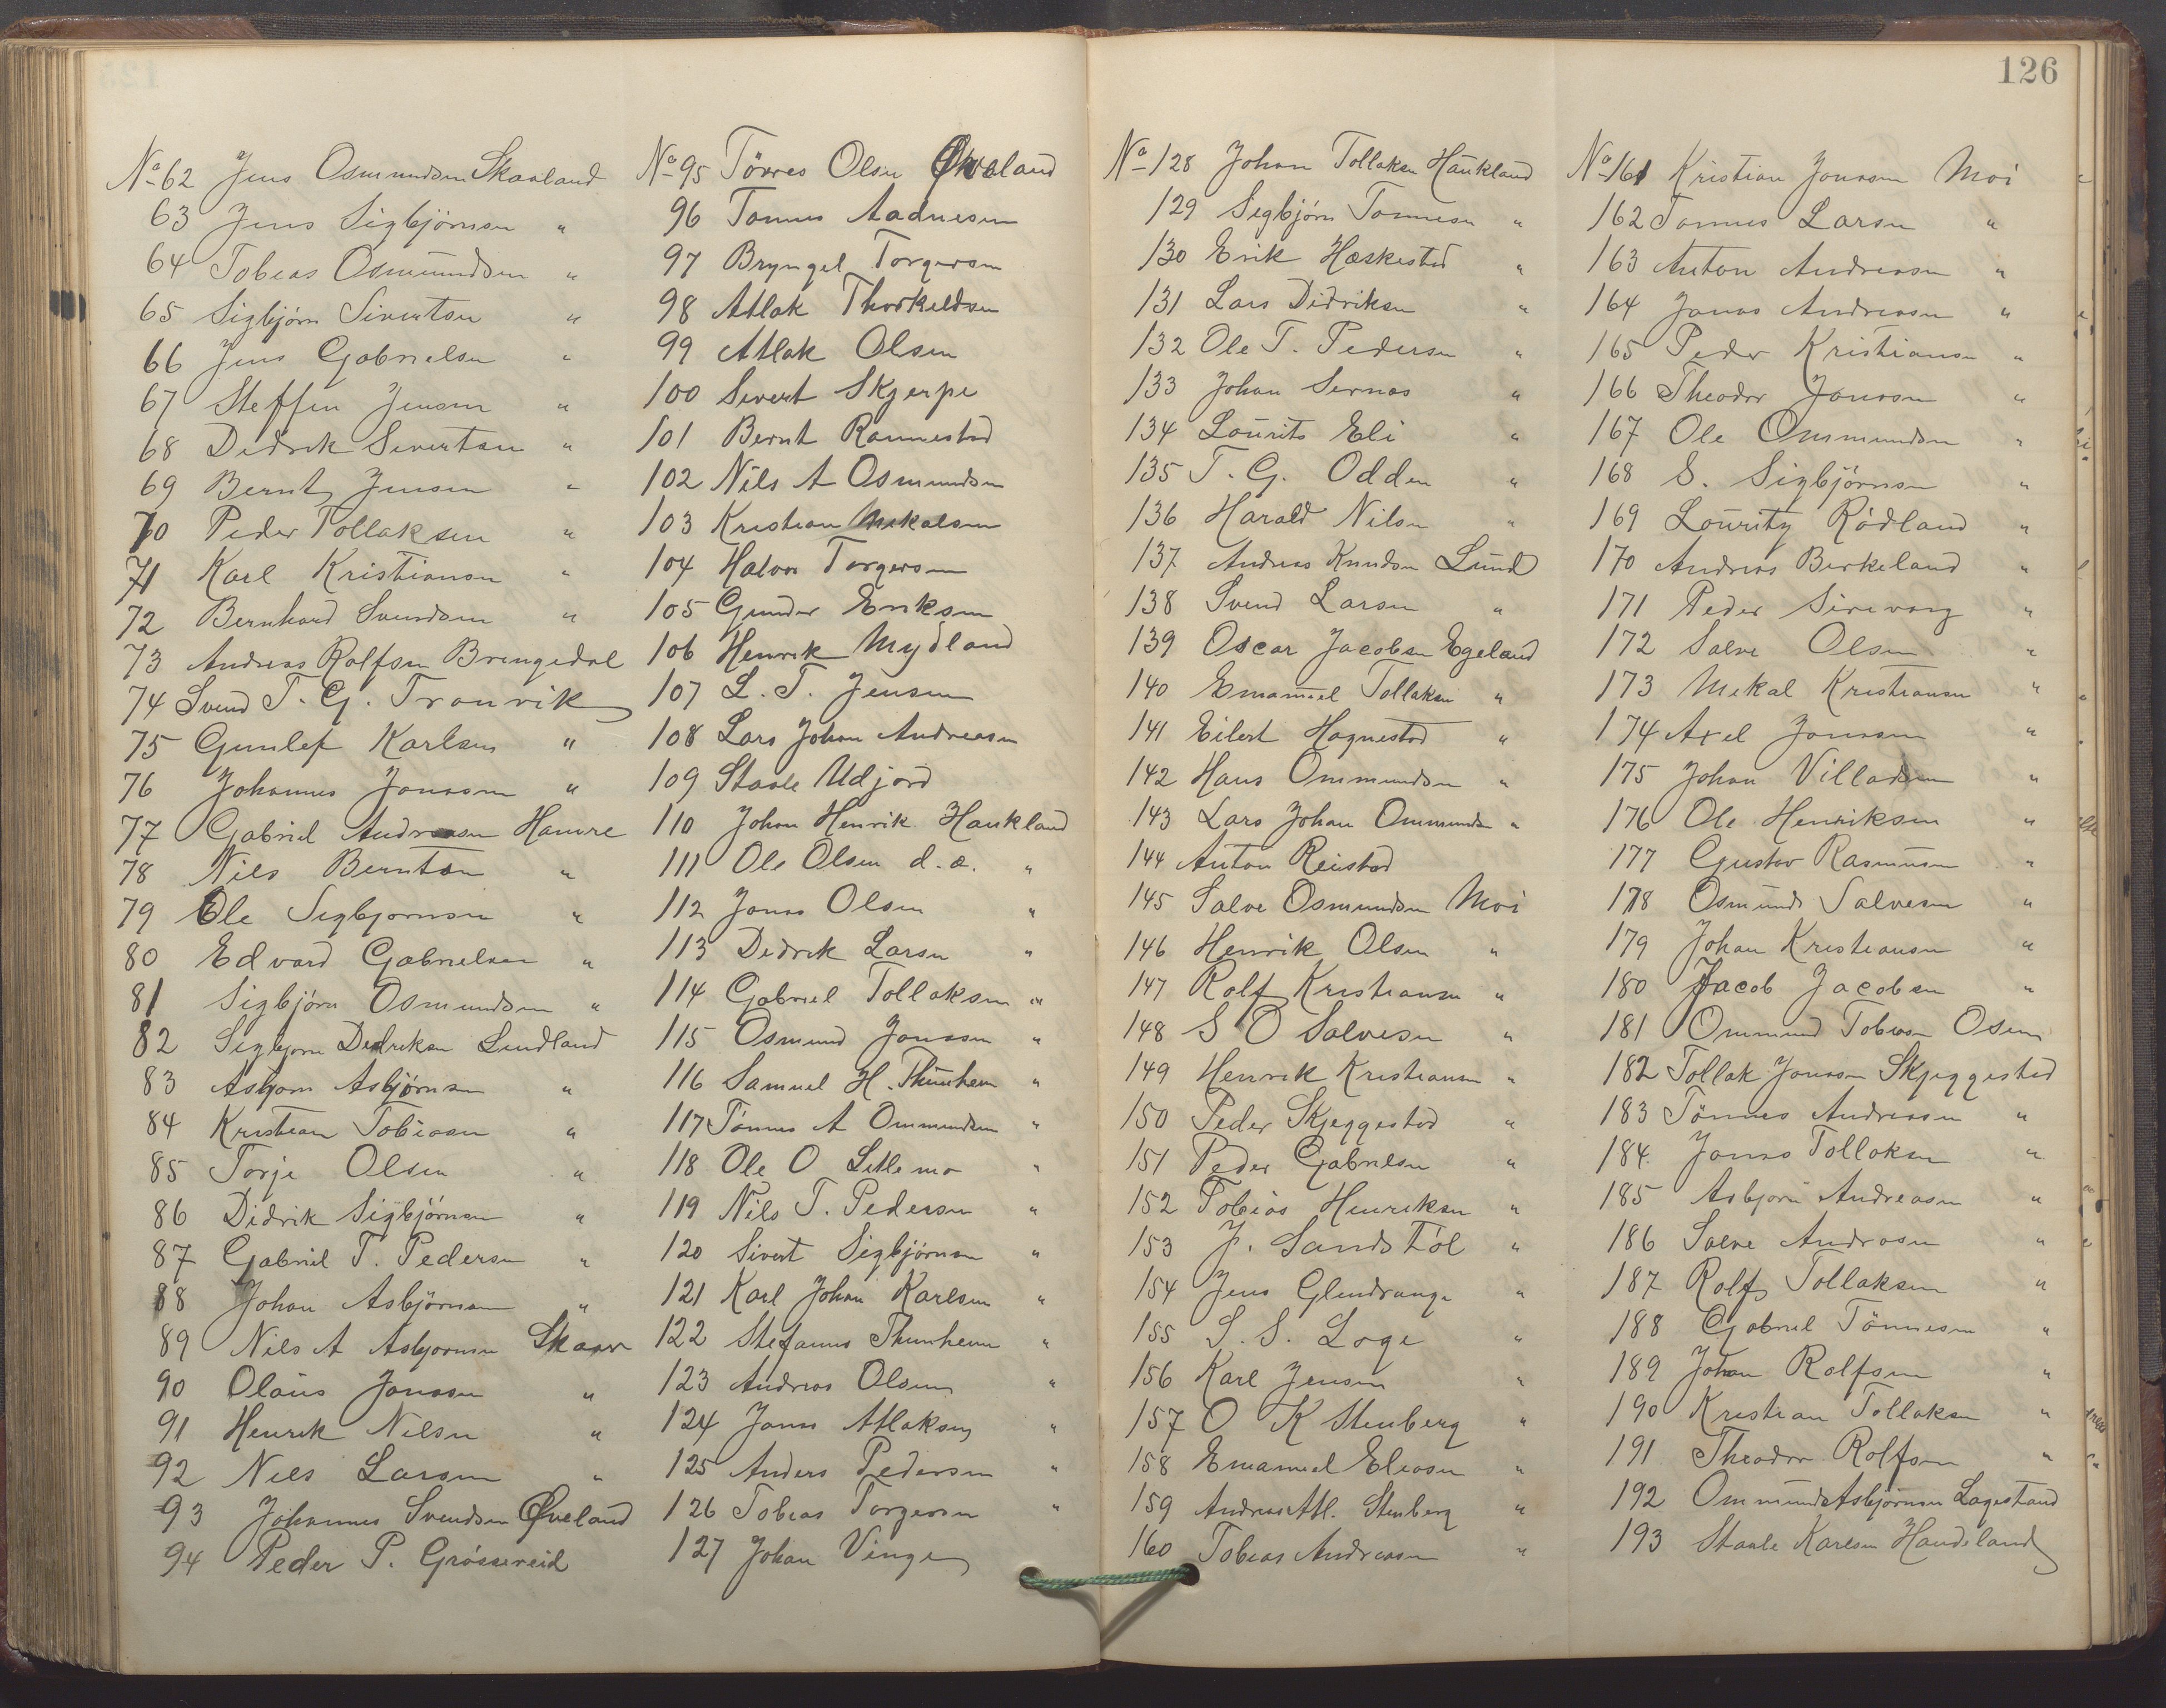 126
No 62 Jens Osmundsen Skaaland
63 Jens Sigbjörnsen "
64 Tobias Osmundsen "
65 Sigbjörn Sivertsen "
66 Jens Gabrielsen "
67 Steffen Jensen "
68 Didrik Sivertsen "
69 Bernt Jensen "
70 Peder Tollaksen "
71 Karl Kristiansen "
72 Bernhard Svendsen "
73 Andreas Rolfsen Bringedal
74 Svend T. G. Tronvik
75 Gunlef Karlsen "
76 Johannes Jonassen "
77 Gabriel Andreasen Hamre
78 Nils Berntsen "
79 Ole Sigbjornsen "
80 Edvard Gabrielsen "
81 Sigbjörn Osmundsen "
82 Sigbjorn Didriksen Lindland
83 Asbjorn Asbjörnsen "
84 Kristian Tobiasen "
85 Torje Olsen "
86 Didrik Sigbjörnsen "
87 Gabriel T. Pedersen "
88 Johan Asbjörnsen "
89 Nils A Asbjornsen Skaar
90 Olaus Jonassen "
91 Henrik Nilsen "
92 Nils Larsen "
93 Johannes Svendsen Øveland
94 Peder P. Grøssereid
No 95 Törres Olsen Øveland
96 Tönnes Aadnesen
97 Bryngel Torgersen
98 Atlak Thorkeldsen
99 Atlak Olsen
100 Sivert Skjerpe
101 Bernt Rannestad
102 Nils A Osmundsen
103 Kristian Mikalsen
104 Halvor Torgersen
105 Gunder Eriksen
106 Henrik Mydland
107 L. T. Jensen
108 Lars Johan Andreasen
109 Staale Udjord
110 Johan Henrik Haukland
111 Ole Olsen d. æ. "
112 Jonas Olsen "
113 Didrik Larsen "
114 Gabriel Tollaksen "
115 Osmund Jonassen "
116 Samuel H. Thunheim "
117 Tönnes A Ommundsen "
118 Ole O Litlemo "
119 Nils T. Pedersen "
120 Sivert Sigbjörnsen "
121 Karl Johan Karlsen "
122 Stefanus Thunheim "
123 Andreas Olsen "
124 Jonas Atlaksen "
125 Anders Pedersen "
126 Tobias Torgersen "
127 Johan Vinge
No 128 Johan Tollaksen Haukland
129 Segbjörn Tonnesen "
130 Erik Hæskestad "
131 Lars Didriksen "
132 Ole T. Pedersen "
133 Johan Sernes "
134 Lourits Eli "
135 T. G. Odden "
136 Harald Nilsen "
137 Andreas Knudsen Lund
138 Svend Larsen "
139 Oscar Jacobsen Egeland
140 Emanuel Tollaksen "
141 Eilert Hognestad "
142 Hans Ommundsen "
143 Lars Johan Ommundsen "
144 Anton Reinstad
145 Salve Osmundsen Moi
146 Henrik Olsen "
147 Rolf Kristiansen "
148 S O Salvesen "
149 Henrik Kristiansen "
150 Peder Skjeggestad "
151 Peder Gabrielsen "
152 Tobias Henriksen "
153 J. Sandstöl "
154 Jens Glendrange "
155 S. S. Loge "
156 Karl Jensen "
157 O K Stenberg "
158 Emanuel Eliasen "
159 Andreas Atl. Stenberg "
160 Tobias Andreasen "
No 161 Kristian Jonassen Moi
162 Tonnes Larsen "
163 Anton Andreasen "
164 Jonas Andreasen "
165 Peder Kristiansen "
166 Theodor Jonassen "
167 Ole Ommundsen "
168 S. Sigbjörnsen "
169 Louritz Rödland "
170 Andreas Birkeland "
171 Peder Sirevaag "
172 Salve Olsen "
173 Mikal Kristiansen "
174 Axel Jonassen "
175 Johan Villadsen "
176 Ole Henriksen "
177 Gustav Rasmusen "
178 Osmund Salvesen "
179 Johan Kristiansen "
180 Jacob Jacobsen "
181 Ommund Tobiasen Osen
182 Tollak Jonassen Skjeggestad
183 Tönnes Andreasen "
184 Jonas Tollaksen "
185 Asbjorn Andreasen "
186 Salve Andreasen "
187 Rolf Tollaksen "
188 Gabriel Tönnesen "
189 Johan Rolfsen "
190 Kristian Tollaksen "
191 Theodor Rolfsen "
192 Ommund Asbjörnsen Lagestrand
193 Staale Karlsen Haudeland